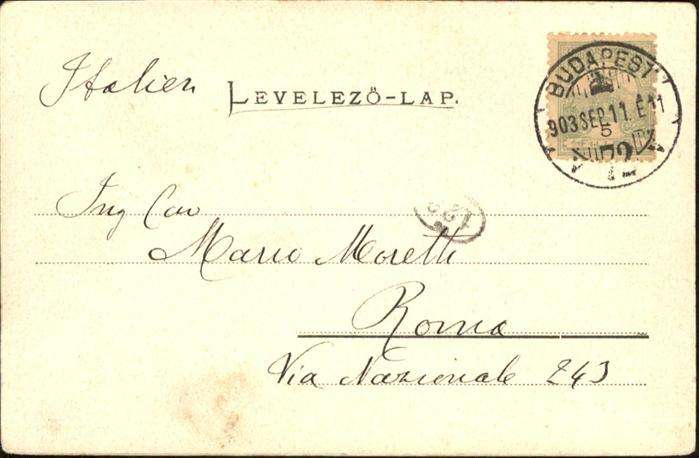 Italien
LEVELEZŐ-LAP.
BUDAPEST
903 SEP. 11. E 11
5
72
Ing Cav
Mario Moretti
Roma
Via Nazionale 243